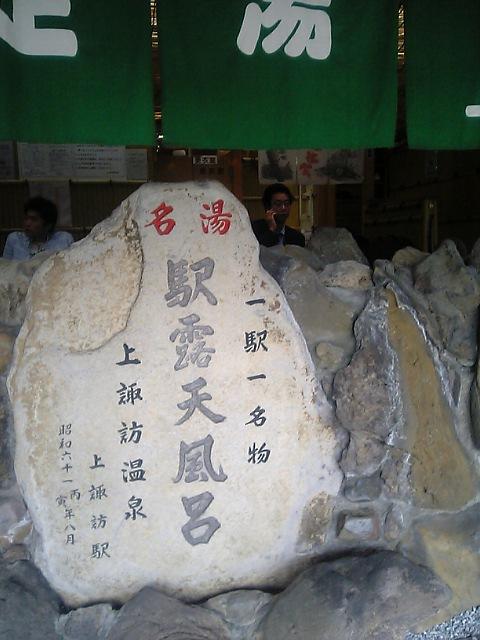 足湯
名湯
一駅一名物
駅露天風呂
上諏訪温泉
上諏訪駅
昭和六十一丙寅年八月